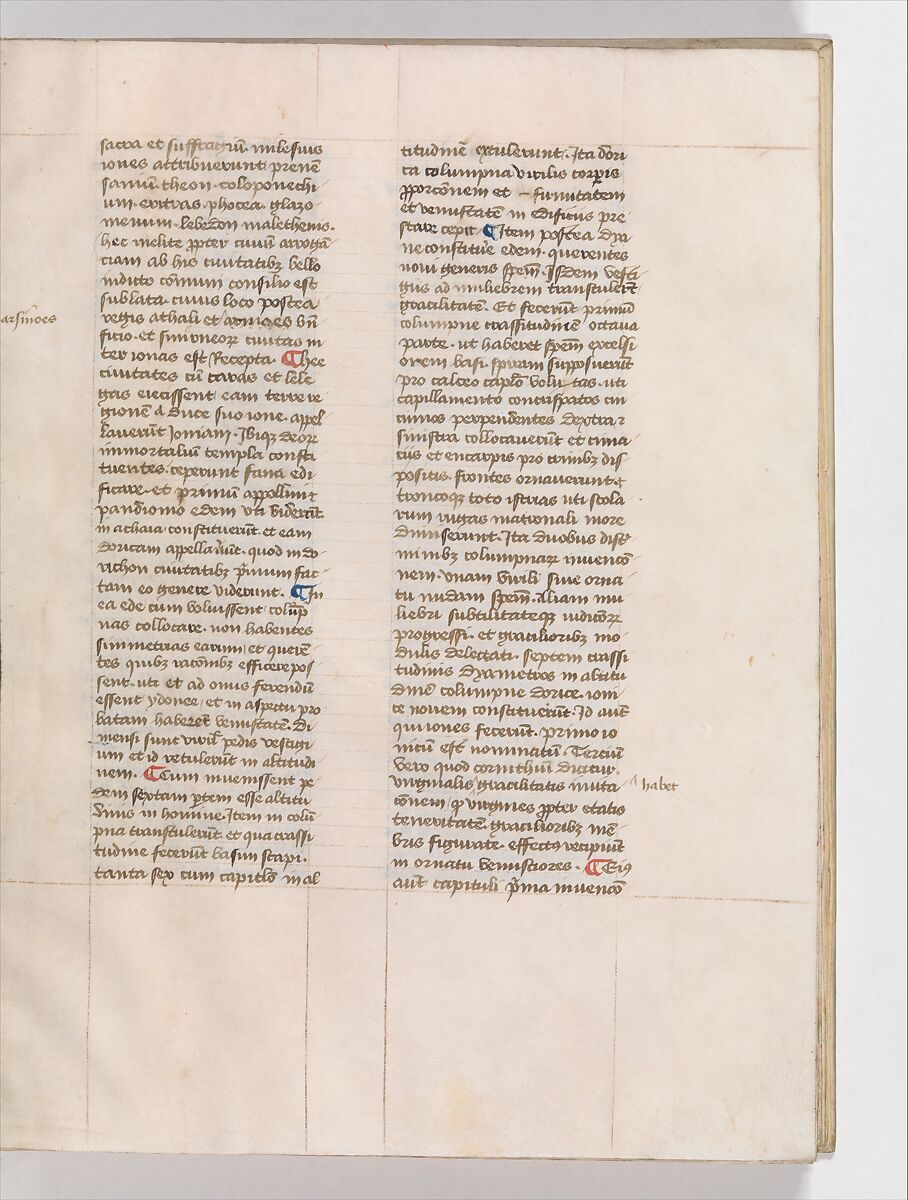 sacra et suffragiū. milesius
iones attribuerunt prenē
samiū. theon. coloponechi
um. eritras. phocea. glazo
menium. lebedon malethenis.
hec melite ꝓpter ciuiū arrogā
ciam ab his ciuitatibꝫ bello
indicto cōmuni consilio est
sublata cuius loco postea
regis athali et arnices bn̄
ficio. et smirneorꝝ ciuitas in
ter ionas est Recepta. ¶ hee
ciuitates cū caras et lele
gas eiecissent eam terre re
gionē a duce suo ione. appel
lauerūt Ioniam. Ibiqꝫ deorꝝ
immortalium templa consti
tuentes. ceperunt fana edi
ficare. et primū appollini
pandionio edem uti viderūt
in achaia constituerūt. et eam
doricam appellauūt. quod in do
richon ciuitatibꝫ p̄mum fac
tam eo genere viderunt. ¶ In
ea ede cum voluissent colūp
nas collocare. non habentes
simmetrias earum et querē
tes quibꝫ racōnibꝫ efficere pos
sent. uti et ad onus ferendū
essent ydonee. et in aspectu pro
batam haberēt venustatē. Di
mensi sunt viril' pedis vestigi
um et id retulerūt in altitudi
nem. ¶ Cum inuenissent pe
dem sextam ꝑtem esse altitu
dinis in homine. Item in colū
pna transtulerūt. et qua crassi
tudine fecerūt basim scapi.
tanta sex cum capitl'o in al
arsinoes
titudinē extulerunt. Ita dori
ca columpna virilis corꝑis
ꝓporcōnem et firmitatem
et venustatē in edificiis pre
stare cepit. ¶ Item postea dya
ne constituere edem. querentes
noui generis spēm. Isdem vesti
giis ad muliebrem transtulerūt
gracilitatē. Et fecerūt primū
columpne crassitudinē octaua
parte. ut haberet spēm excelsi
orem basi. spiram supposuerūt
pro calceo capl'o volutas. uti
capillamento concrispatos cin
cinnos prependentes dextra ⁊
sinistra collocauerūt et cima
ciis et encarpis pro crinibꝫ dis
positis. frontes ornauerunt. ⁊
troncoqꝫ toto istrias uti stola
rum rugas matronali more
dimiserunt. Ita duobus discr
minibꝫ columpnarꝝ inuencō
nem. vnam virili siue orna
tu nudam spēm. aliam mu
liebri subtilitateqꝫ
progressi. et gracilioribꝫ mo
dulis delectati. septem crassi
tudinis dyametros in altitu
dinē columpne dorice. ioni
ce nouem constituerūt. Id aūt
qui iones fecerūt. primo io
nicū est nominatū. Tercium
vero quod corinthiū dicitur.
virginalis gracilitatis muta
habet
cōnem qꝫ virgines ꝓpter etatis
teneritatē. gracilioribꝫ mē
bris figurate. effectꝰ recipiūt
in ornatu venustiores. ¶ Eiꝰ
aūt capituli p̄ma inuencō